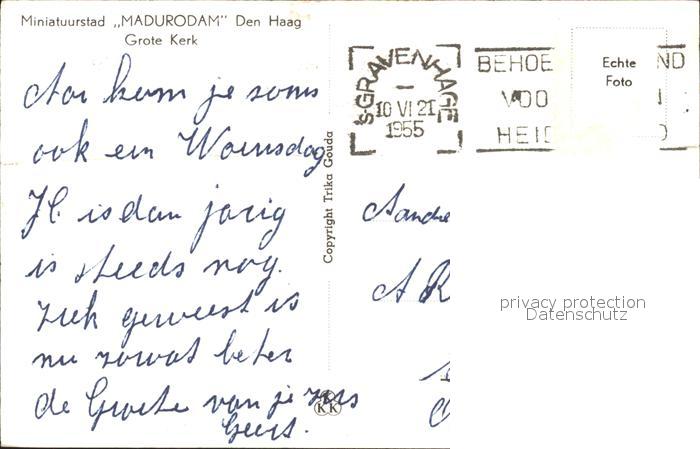 Miniatuurstad „MADURODAM” Den Haag
Grote Kerk
kom je soms
ook een Woensdag
H. is dan jarig
is steeds nog
ziek geweest is
nu zowat beter
de Groete van je zus
Geert.
Copyright Trika Gouda
KK
's-GRAVENHAGE
10 VI 21
1955
BEHOE ND
VOO
HEI
Echte
Foto
A R
privacy protection
Datenschutz